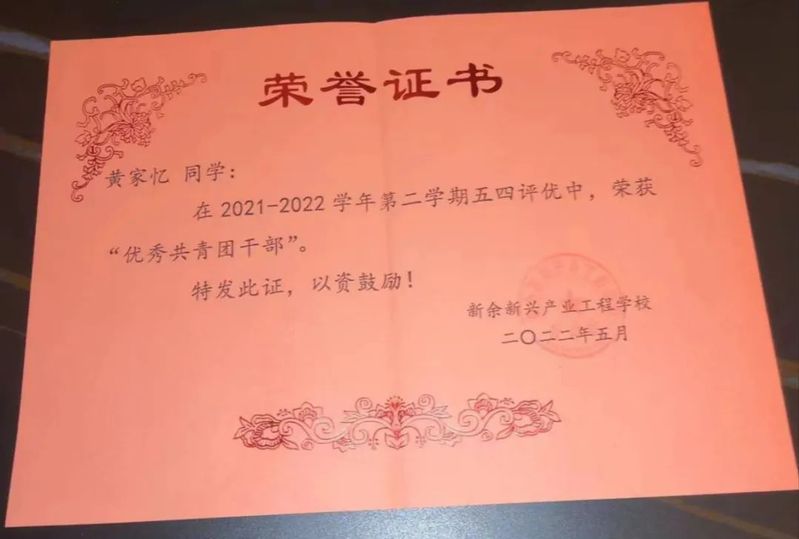 荣誉证书
黄家忆 同学：
在 2021-2022 学年第二学期五四评优中，荣获
“优秀共青团干部”。
特发此证，以资鼓励！
新余新兴产业工程学校
二〇二二年五月